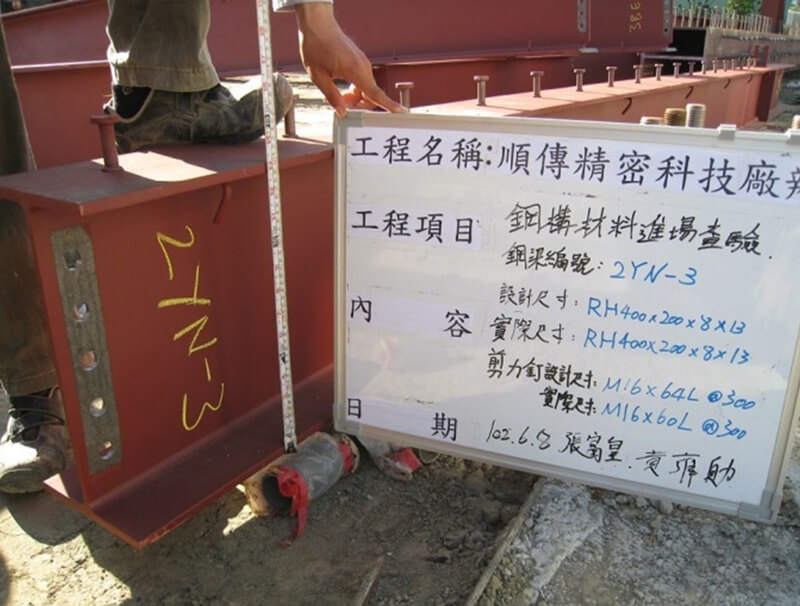 38E
2YN-3
工程名稱:順傳精密科技廠
工程項目 鋼構材料進場查驗.
鋼梁編號: 2YN-3
內容 設計尺寸: RH400x200x8x13
實際尺寸: RH400x200x8x13
剪力釘設計尺寸: M16x64L @300
實際尺寸: M16x60L @300
日期 102.6.8 張富皇.